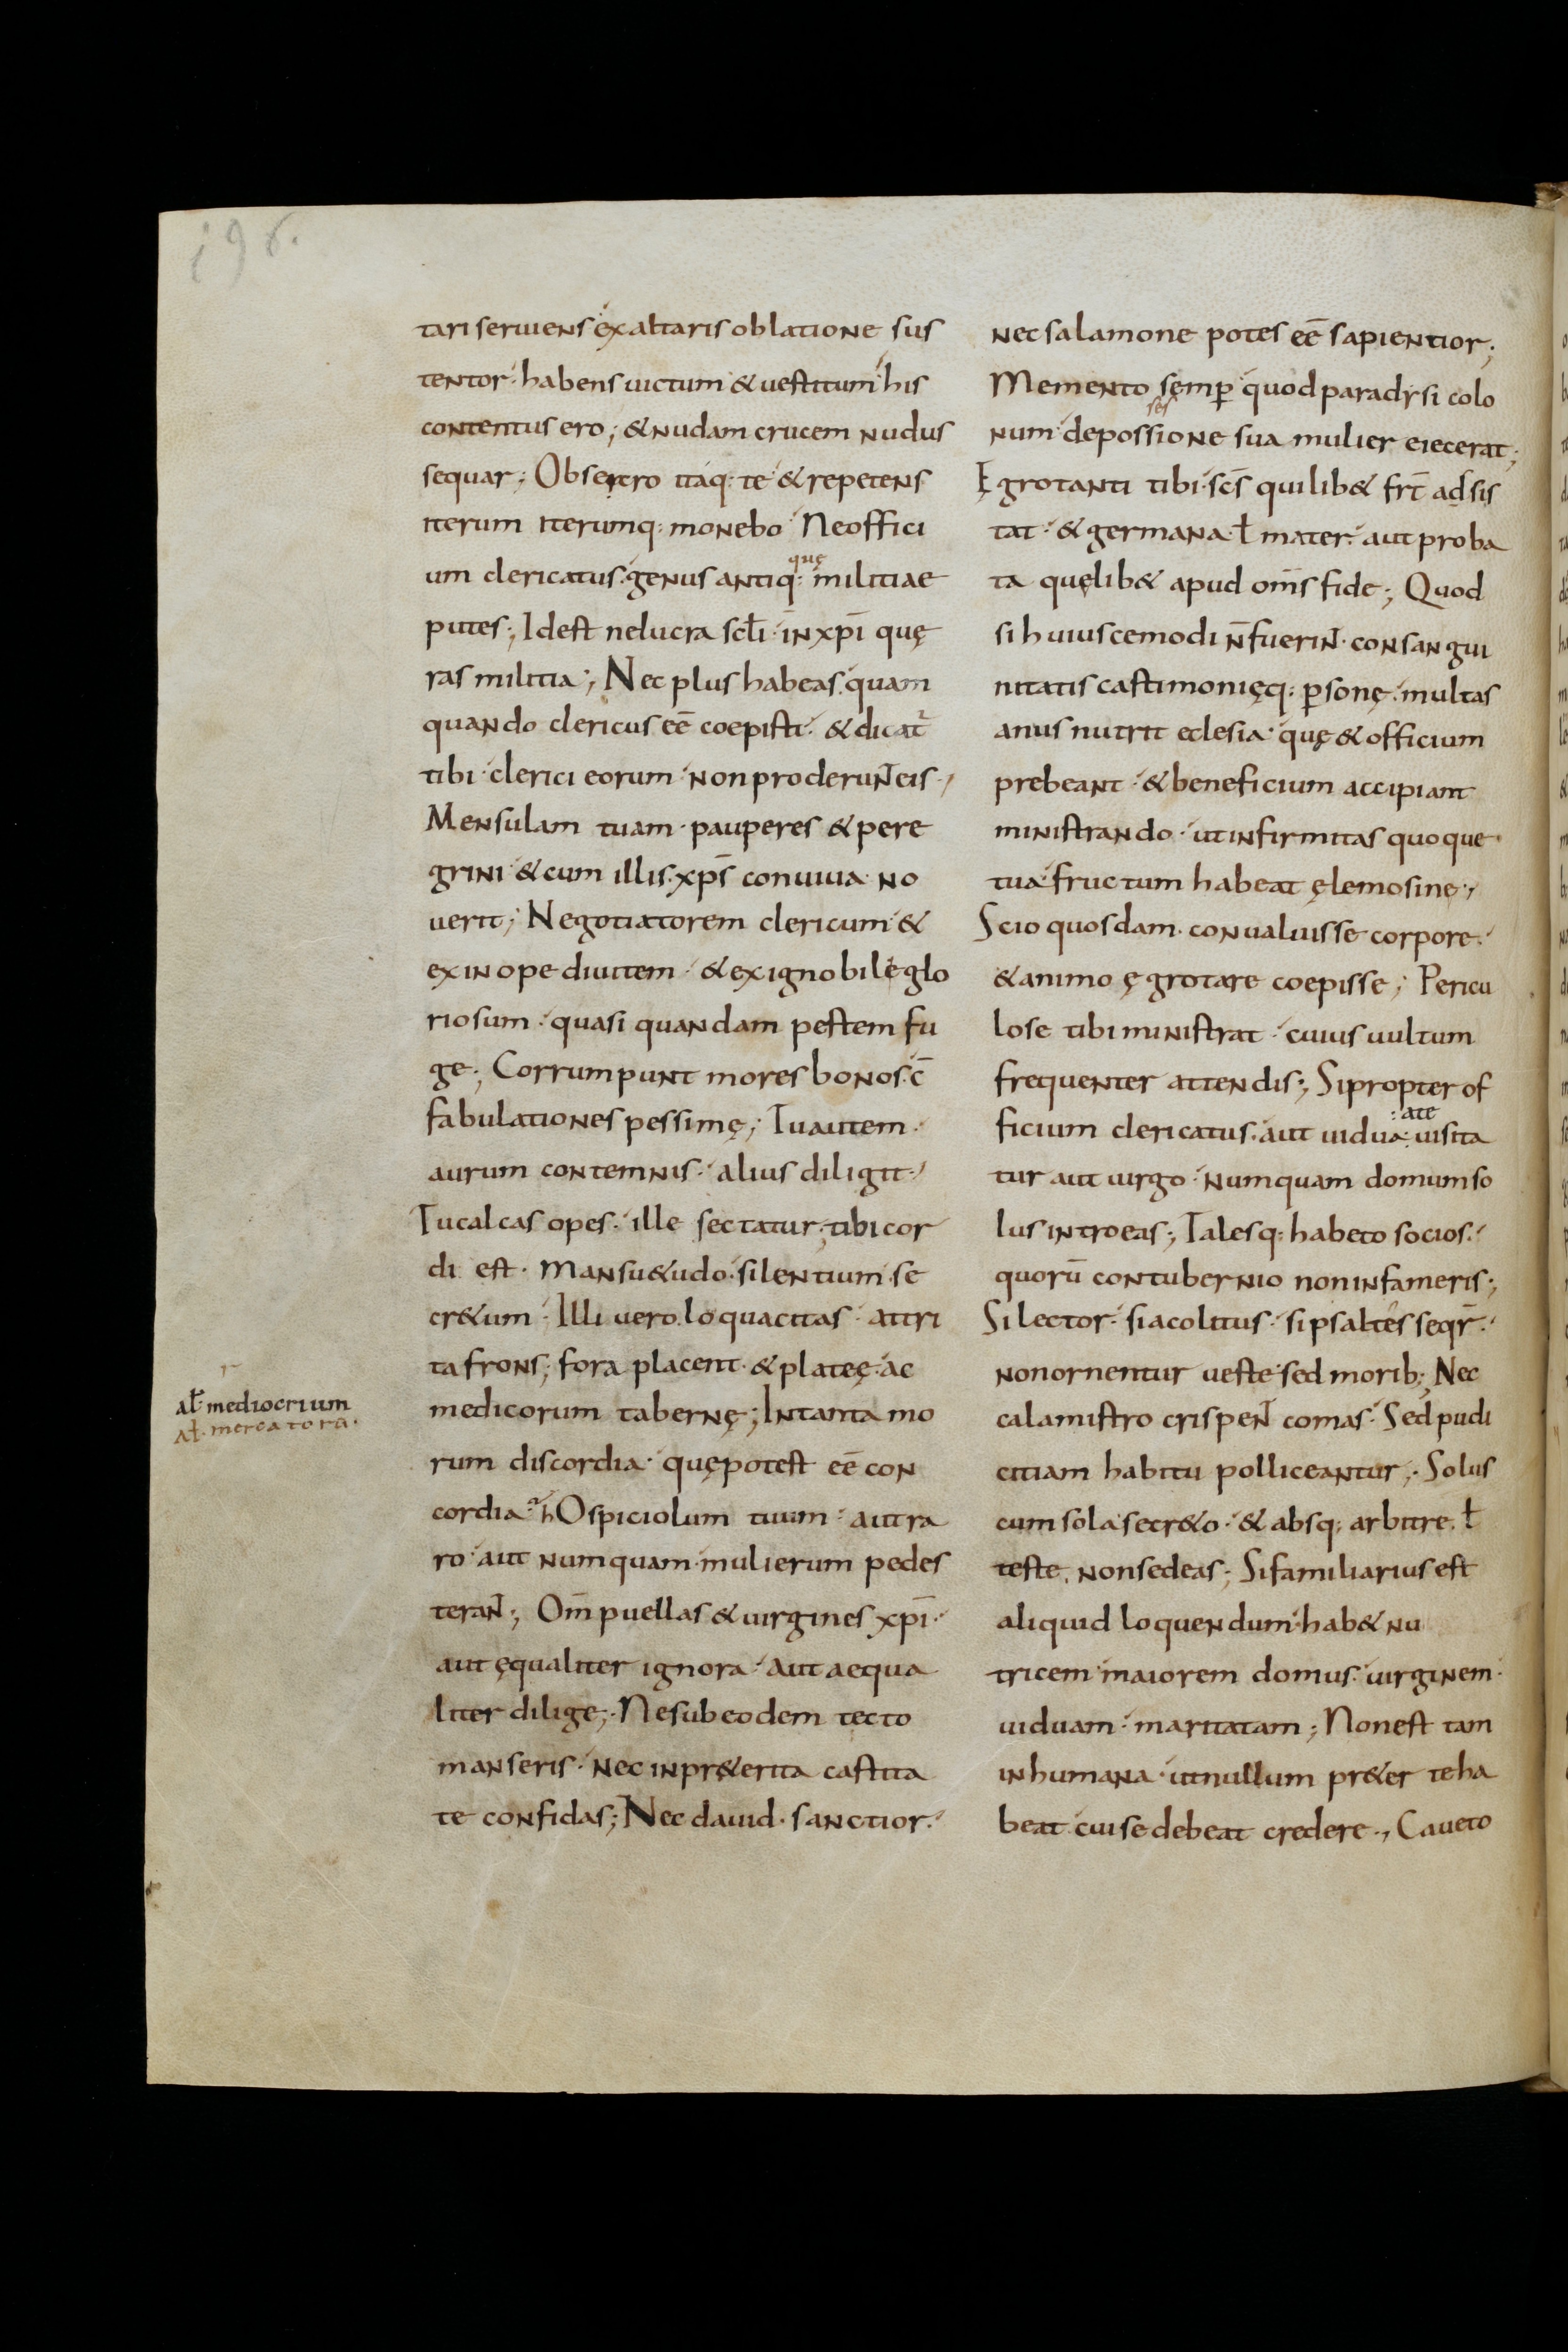 196.
tari seruiens ex altaris oblatione sus
tentor· habens uictum & uestitum his
contentus ero; & nudam crucem nudus
sequar; Obsecro itaq: te & repetens
iterum iterumq: monebo Ne offici
um clericatus· genus antiq: militiae
quę
putes; Id est ne lucra sc̄li in xp̄i quę
ras militia; Nec plus habeas quam
quando clericus eē coepisti· & dicat᷑
tibi clerici eorum non proderun̄ eis·
Mensulam tuam· pauperes & pere
grini & cum illis xp̄s conuiua no
uerit; Negotiatorem clericum &
ex inope diuitem· & ex ignobile glo
riosum· quasi quandam pestem fu
ge; Corrumpunt mores bonos· c̄
fabulationes pessimę; Tu autem·
aurum contemnis· alius diligit·
Tu calcas opes· ille sectatur; tibi cor
di est· Mansu&udo· silentium· se
cr&um· Illi uero loquacitas· attri
ta frons; fora placent· & plateę· ac
medicorum tabernę; In tanta mo
al̄ mediocrium
al̄· mercatorū·
rum discordia· quę potest eē con
cordia· hOspiciolum tuum· aut ra
ro aut numquam· mulierum pedes
teran̄; Om̄ puellas & uirgines xp̄i·
aut ęqualiter ignora· Aut aequa
liter dilige; Ne sub eodem tecto
manseris· Nec in pr&erita castita
te confidas; Nec dauid· sanctior·
nec salamone potes eē sapientior;
Memento semꝑ quod paradysi colo
num de possione sua mulier eiecerat;
ses
Ęgrotanti tibi· sc̄s quilib& fr̄t adsis
tat· & germana· ł mater· aut proba
ta quęlib& apud om̄s fide; Quod
si huiuscemodi n̄ fuerin̄· consangui
nitatis castimonięq: ꝑsonę· multas
anus nutrit eclesia· quę & officium
prebeant· & beneficium accipiant
ministrando· ut infirmitas quoque
tua fructum habeat ęlemosine;
Scio quosdam· conualuisse corpore·
& animo ęgrotare coepisse; Pericu
lose tibi ministrat· cuius uultum
frequenter attendis; Si propter of
ficium clericatus· aut uidua· uisita
ate
tur aut uirgo· numquam domum so
lus introeas; Talesq: habeto socios·
quorū contubernio non infameris;
Si lector· si acolitus· si psaltes seqr̄·
non ornentur ueste sed morib; Nec
calamistro crispen̄ comas· Sed pudi
citiam habitu polliceantur; Solus
cum sola secr&o· & absq; arbitre· ł
teste· non sedeas; Si familiarius est
aliquid loquendum· hab& nu
tricem maiorem domus· uirginem·
uiduam· maritatam; Non est tam
inhumana· ut nullum pr&er te ha
beat cui se debeat credere; Caueto